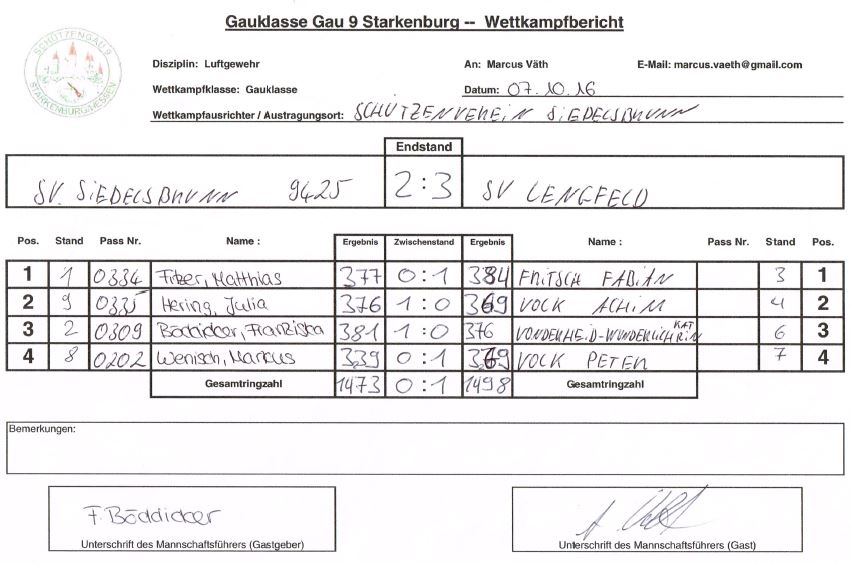 Gauklasse Gau 9 Starkenburg -- Wettkampfbericht
SCHÜTZENGAU 9
STARKENBURG HESSEN
Disziplin: Luftgewehr An: Marcus Väth E-Mail: marcus.vaeth@gmail.com
Wettkampfklasse: Gauklasse Datum: 07.10.16
Wettkampfausrichter / Austragungsort: SCHÜTZENVEREIN SiEDELSBRUNN
Endstand
SV. SiEDELSBRUNN 9425 2:3 SV LENGFELD
Pos. Stand Pass Nr. Name : Ergebnis Zwischenstand Ergebnis Name : Pass Nr. Stand Pos.
1 1 0334 Matthias 377 0:1 384 FRITSCH FABIAN 3 1
2 9 0335 Hering, Julia 376 1:0 369 VOCK ACHIM 4 2
3 2 0309 Böddicker, Franziska 381 1:0 376 VONDERHEiD-WUNDERLICH KATRIN 6 3
4 8 0202 Wenisch, Markus 339 0:1 369 VOCK PETER 7 4
Gesamtringzahl 1473 0:1 1498 Gesamtringzahl
Bemerkungen:
F. Böddicker
Unterschrift des Mannschaftsführers (Gastgeber) Unterschrift des Mannschaftsführers (Gast)